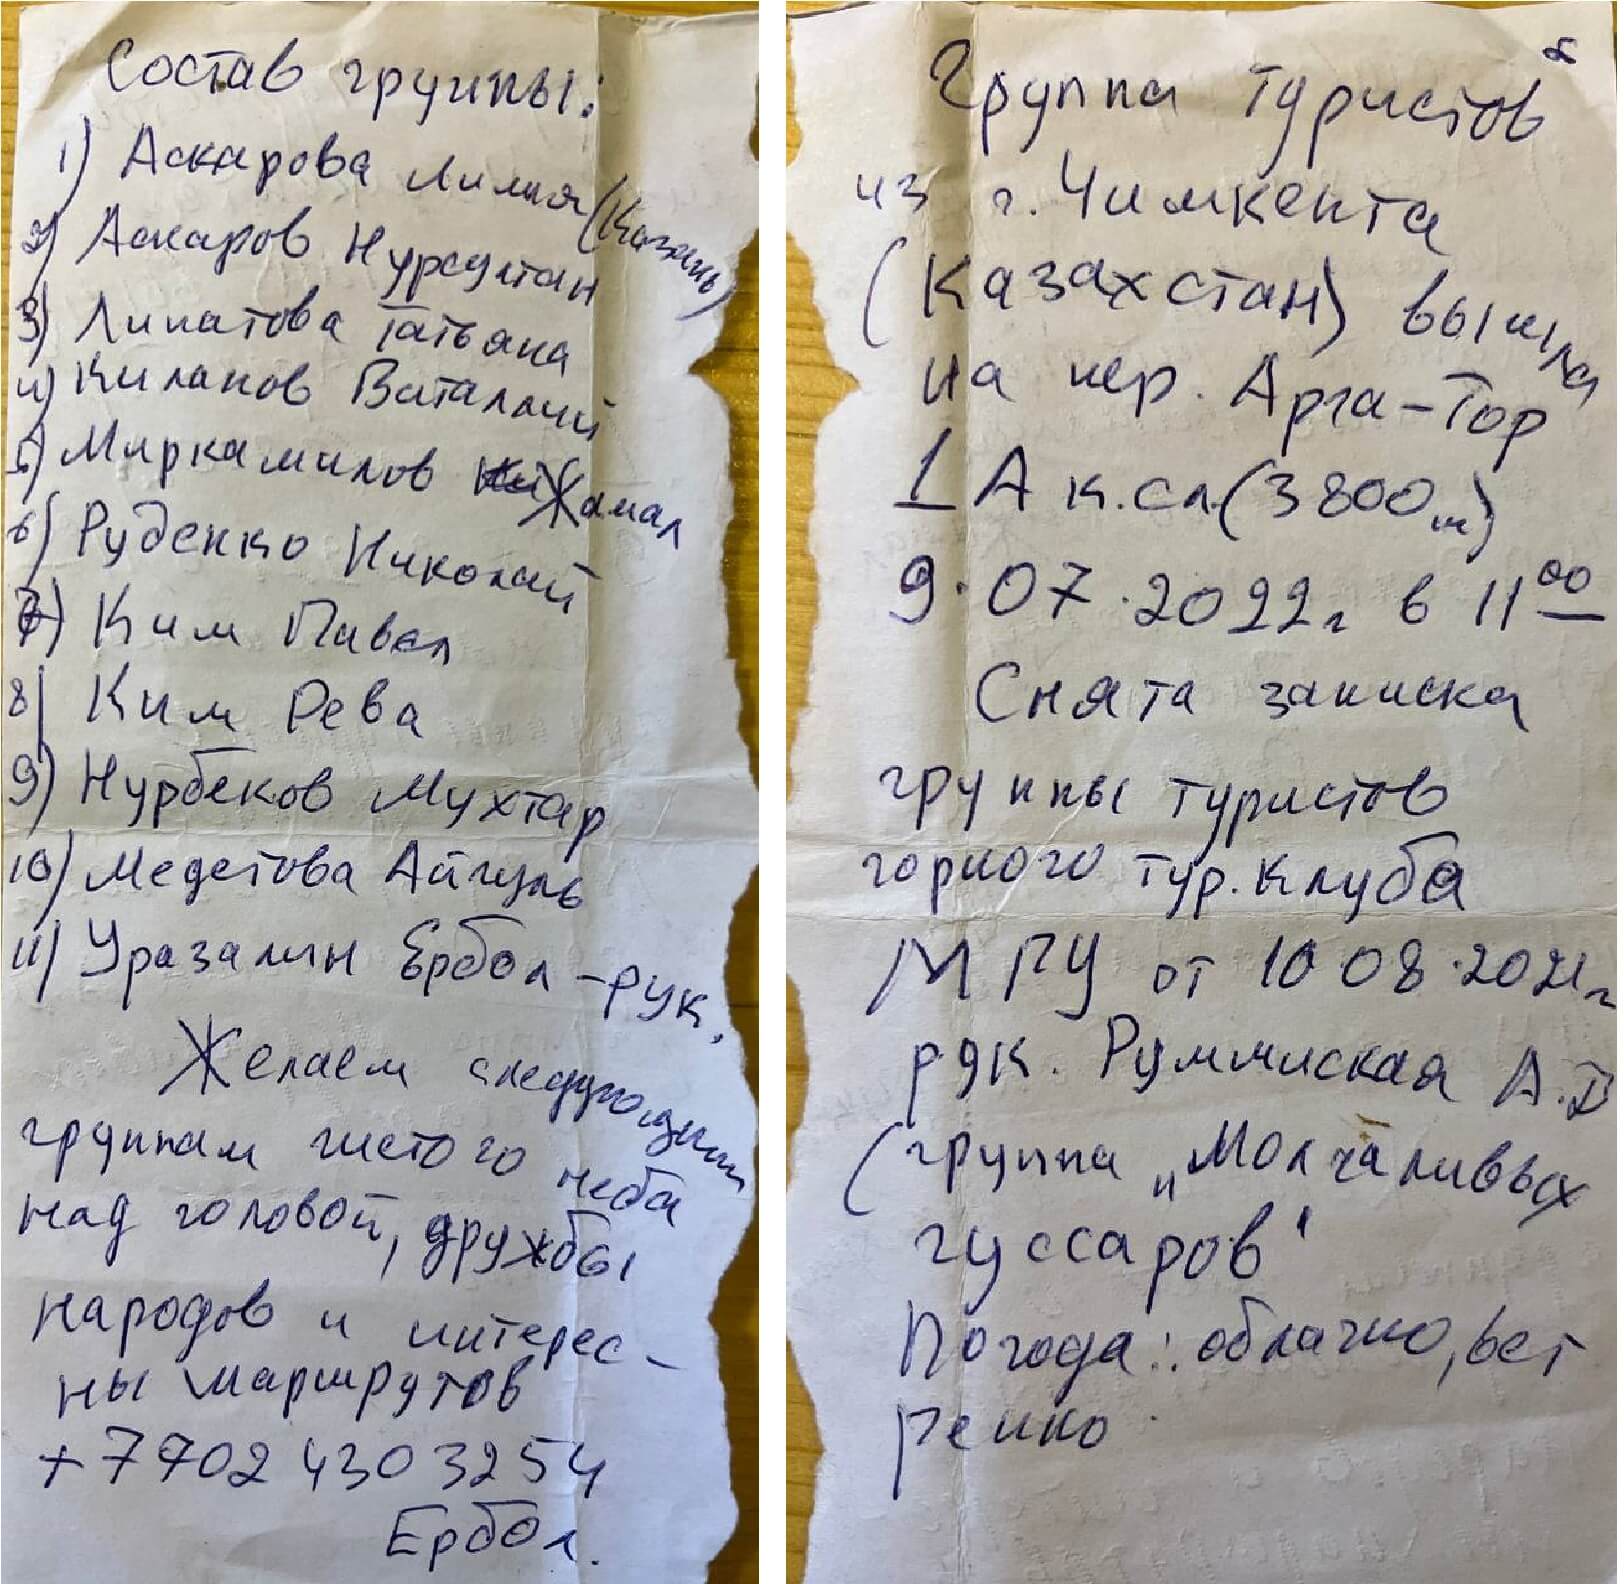 Состав группы:
1) Аскарова Лилия (Казань)
2) Аскаров Нурсултан
3) Липатова Татьяна
4) Киланов Виталий
5) Миркамилов Жамал
6) Руденко Николай
7) Ким Павел
8) Ким Рева
9) Нурбеков Мухтар
10) Медетова Айгуль
11) Уразалин Ербол - рук.
Желаем следующим
группам чистого неба
над головой, дружбы
народов и интерес-
ны маршрутов
+7 702 430 3254
Ербол.
Группа туристов
из г. Чимкента
(Казахстан) вышла
на пер. Арча-Тор
1А к.сл (3800м)
9.07.2022г в 11 00
Снята записка
группы туристов
горного тур. клуба
МГУ от 10 08.2021г
рук. Румянская А.В
(группа „Молчаливых
гуссаров"
Погода: облачно, вет
ренно